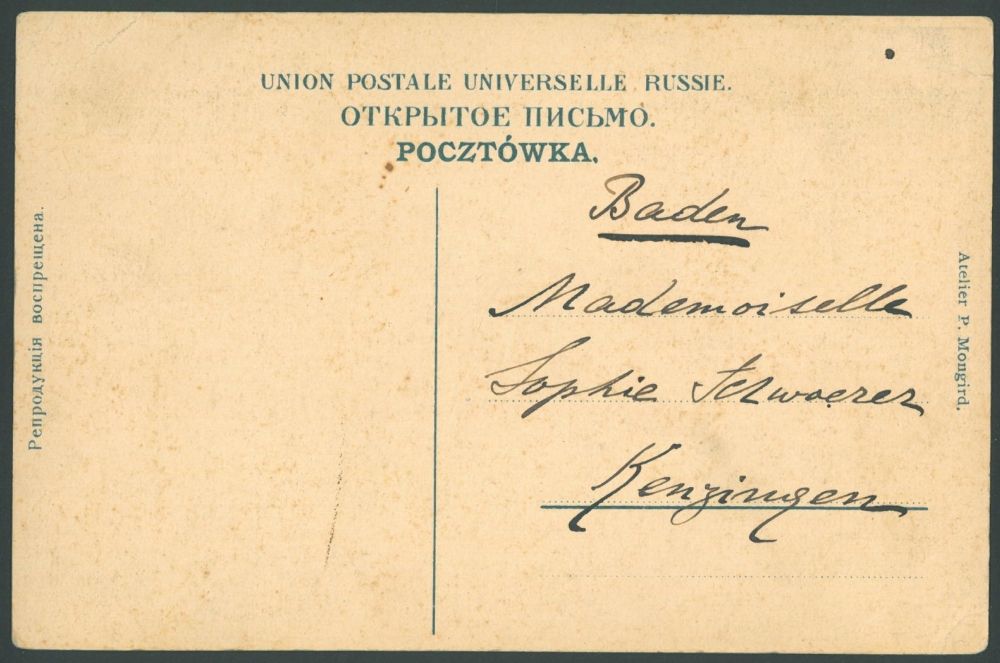 UNION POSTALE UNIVERSELLE RUSSIE.
ОТКРЫТОЕ ПИСЬМО.
POCZTÓWKA.
Репродукція воспрещена.
Baden
Mademoiselle
Sophie Schwoerer
Kenzingen
Atelier P. Mongird.